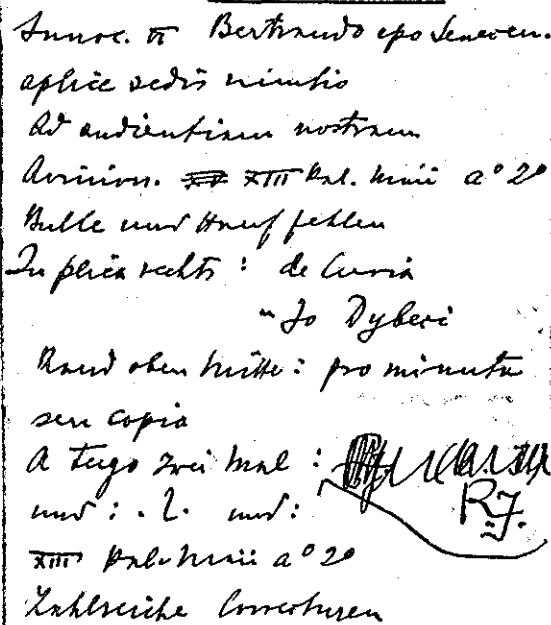 Innoc. VI Bertrando epo Senecen.
aplice sedis nuntio
Ad audientiam nostram
Avinion. XIII kal. maii a° 2°
Bulle und Hanf fehlen
In plica rechts: de Curia
" Jo Dyberi
Rand oben Mitte: pro minuta
seu copia
A tergo zwei mal:
und: . 2. und: R.J.
XIII kal. maii a° 2°
Zahlreiche Correcturen